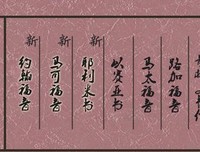 路加福音
馬太福音
新
耶利米书
新
馬可福音
新
約翰福音